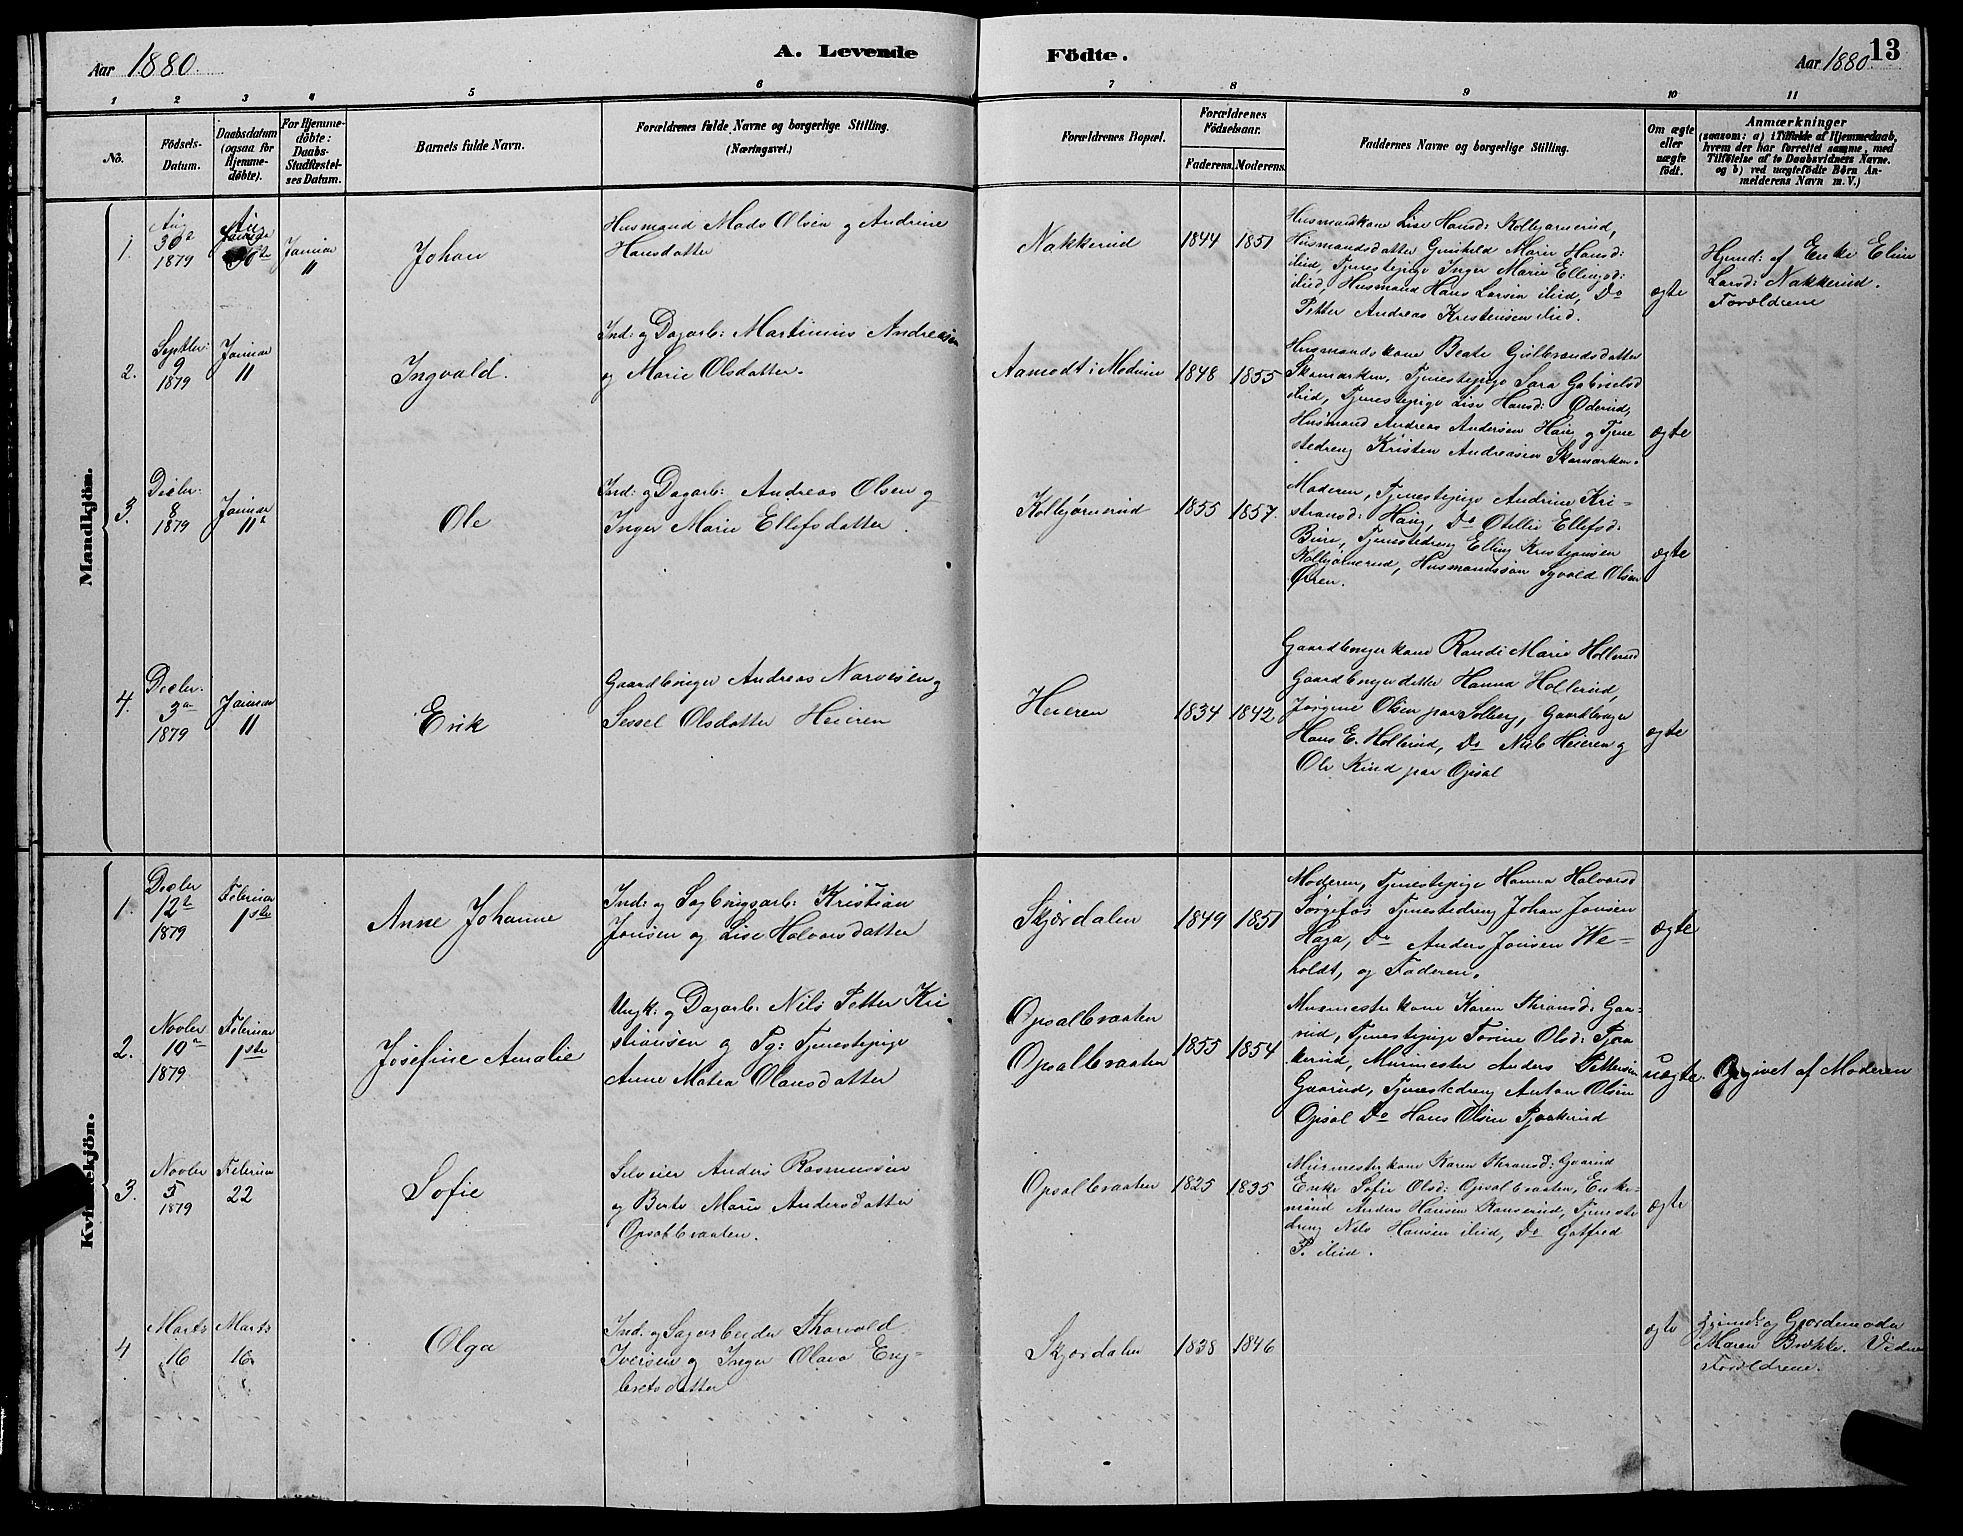 Aar 1880.
A. Levende
Födte.
Aar 1880
13
1
2
3
4
5
6
7
8
9
10
11
No.
Födsels-
Datum.
Daabsdatum
(ogsaa for
Hjemme-
döbte).
For Hjemme-
döbte:
Daabs-
Stadfæstel-
ses Datum.
Barnets fulde Navn.
Forældrenes fulde Navne og borgerlige Stilling.
(Næringsvei.)
Forældrenes Bopæl.
Forældrenes
Födselsaar.
Faderens.
Moderens.
Faddernes Navne og borgerlige Stilling.
Om ægte
eller
uægte
født.
Anmærkninger
(saasom: a) i Tilfælde af Hjemmedaab,
hvem der har forrettet samme, med
Tilföielse af to Daabsvidners Navne.
og b) ved uægtefödte Börn An-
melderens Navn m. V.)
Mandkjön.
1.
Aug
30
1879
Aug
30te
Januar
11
Johan
Husmand Mads Olsen og Andrine
Hansdatter
Nakkerud
1844
1851
Husmandkone Lise Hansd: Kolbjørnerud,
Husmandsdatter Gunhild Marie Hansd:
ibid, Tjenestepige Inger Marie Ellingsd:
ibid, Husmand Hans Larsen ibid, Do
Petter Andreas Kristensen ibid.
ægte
Hjmd: af Enke Eline
Larsd: Nakkerud.
Forældrene
2.
Septbr:
9
1879
Januar
11
Ingvald.
Ind: og Dagarb: Martinius Andreasen
og Marie Olsdatter.
Aamodt i Modum
1848
1855
Husmandskone Beate Gulbrandsdatter
Skamarken, Tjenestepige Sara Gabrielsd
ibid, Tjenestepige Lise Hansd: Øderud,
Husmand Andreas Andersen Haug og Tjene
stedreng Kristen Andreasen Skamarken.
ægte
3.
Decbr.
8
1879
Januar
11
Ole
Ind: og Dagarb: Andreas Olsen og
Inger Marie Ellefsdatter.
Kolbjørnerud
1855
1857.
Moderen, Tjenestepige Andrine Kri-
stiansd: Haug, Do Otillie Ellefsd:
Bure, Tjenestedreng Elling Kristiansen
Kolbjørnerud, Husmandssøn Syvald Olsen
Øren.
ægte
4.
Decbr.
3
1879
Januar
11
Erik
Gaardbruger Andreas Narvesen og
Sessel Olsdatter Heieren
Heieren
1834
1842
Gaardbrugerkone Randi Marie Hollerud
Gaardbrugerdatter Hanna Hollerud,
Jørgine Olsen paa Solberg, Gaardbruger
Hans E. Hollerud, Do Nils Heieren og
Ole Kind paa Opsal
ægte
Kvindekjön.
1.
Decbr
12te
1879
Februar
1ste
Anne Johanne
Ind: og Sagbrugsarb: Kristian
Jonsen og Lise Halvorsdatter
Skjærdalen
1849
1851
Moderen, Tjenestepige Hanna Halvorsd
Sørgefos Tjenestedreng Johan Jonsen
Haga, Do Anders Jonsen We-
holdt, og Faderen.
ægte
2.
Novbr
10
1879
Februar
1ste
Josefine Amalie
Ungk: og Dagarb: Nils Petter Kri
stiansen og Pg: Tjenestepige
Anne Matea Olausdatter
Opsalbraaten
Opsalbraaten
1855
1854
Murmesterkone Karen Thronsd: Gaa-
rud, Tjenestepige Torine Olsd: Pjaa
kerud, Murmester Anders Pettersen
Gaarud, Tjenestedreng Anton Olsen
Opsal Do Hans Olsen Pjaakerud
uægte.
Opgivet af Moderen
3.
Novbr
5
1879
Februar
22
Sofie
Selveier Anders Rasmussen
og Berte Marie Andersdatter
Opsalbraaten.
Opsalbraaten
1825
1835
Murmesterkone Karen Thronsd: Gaarud
Enke Sofie Olsd: Opsalbraaten, Enke-
mand Anders Hansen Ranserud, Tjeneste
dreng Nils Hansen ibid, Do Gotfred
P. ibid.
ægte
4
Marts
16
Marts
16
Olga
Ind. og Sagarbeider Thorvald
Iversen og Inger Olava Eng-
bretsdatter
Skjærdalen
1838
1846
ægte
Hjemd: og Gjordemoder
Maren Brække. Vidne
Forældrene.